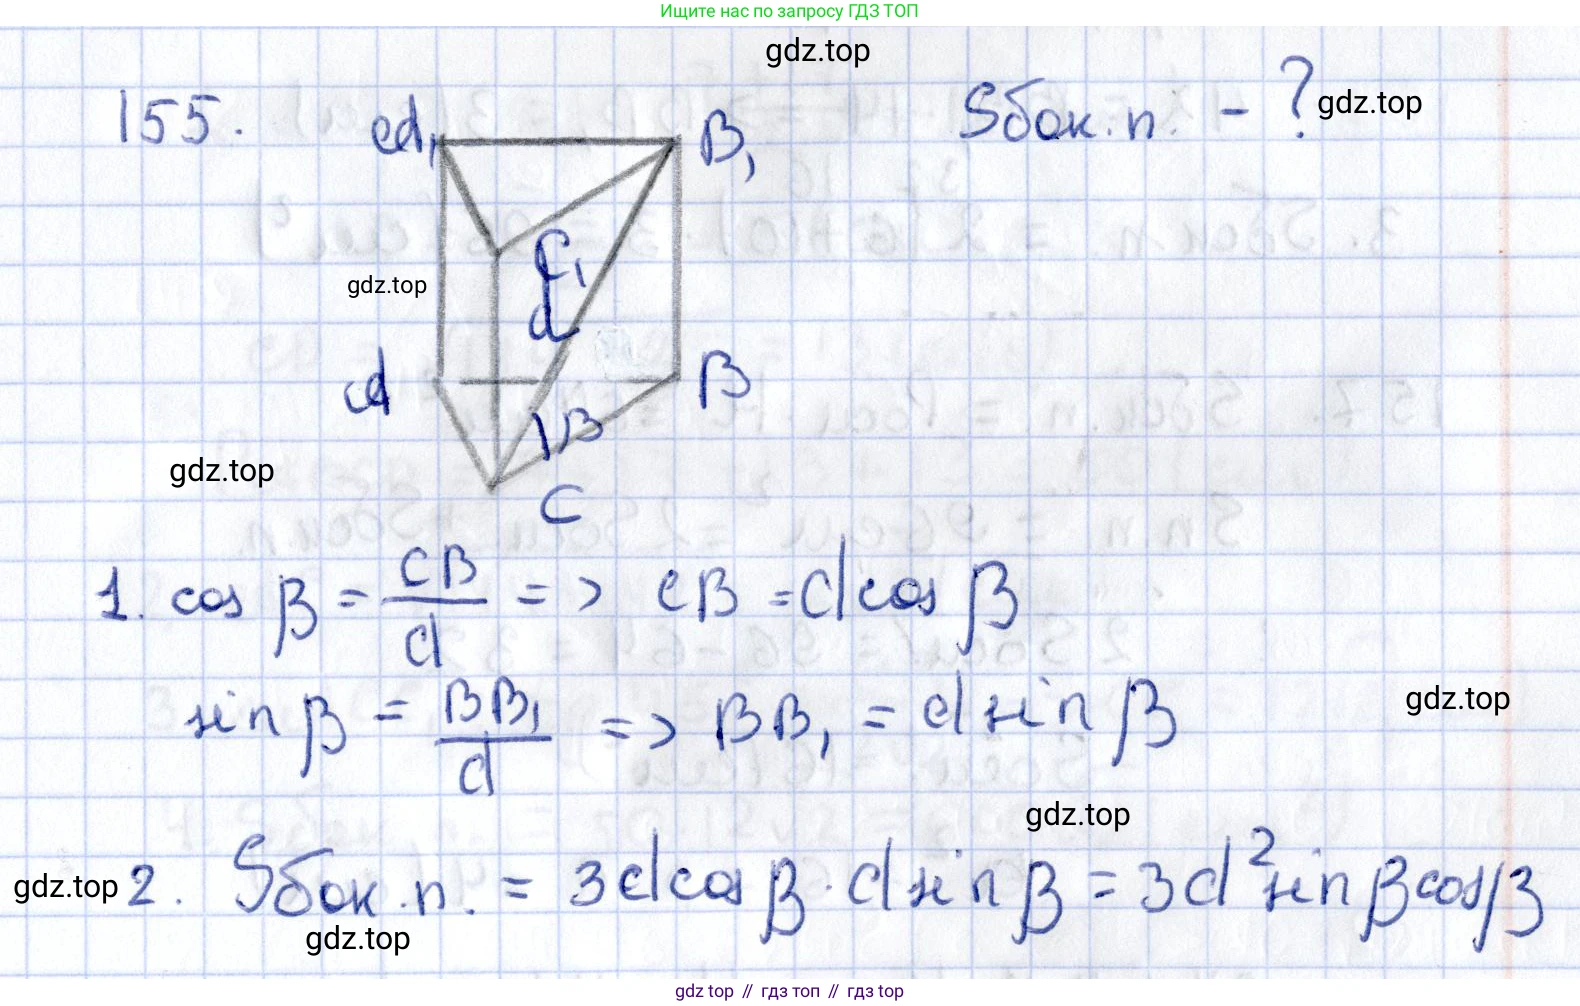 Ищите нас по запросу ГДЗ ТОП
gdz.top
155.
A₁
B₁
Sбок.п. - ?
gdz.top
C₁
d
gdz.top
A
B
β
gdz.top
C
1. cos β = CB/d => CB = d cos β
sin β = BB₁/d => BB₁ = d sin β
gdz.top
gdz.top
gdz.top
2. Sбок.п. = 3d cos β · d sin β = 3d² sin β cos β
gdz.top
gdz top // гдз топ // гдз top